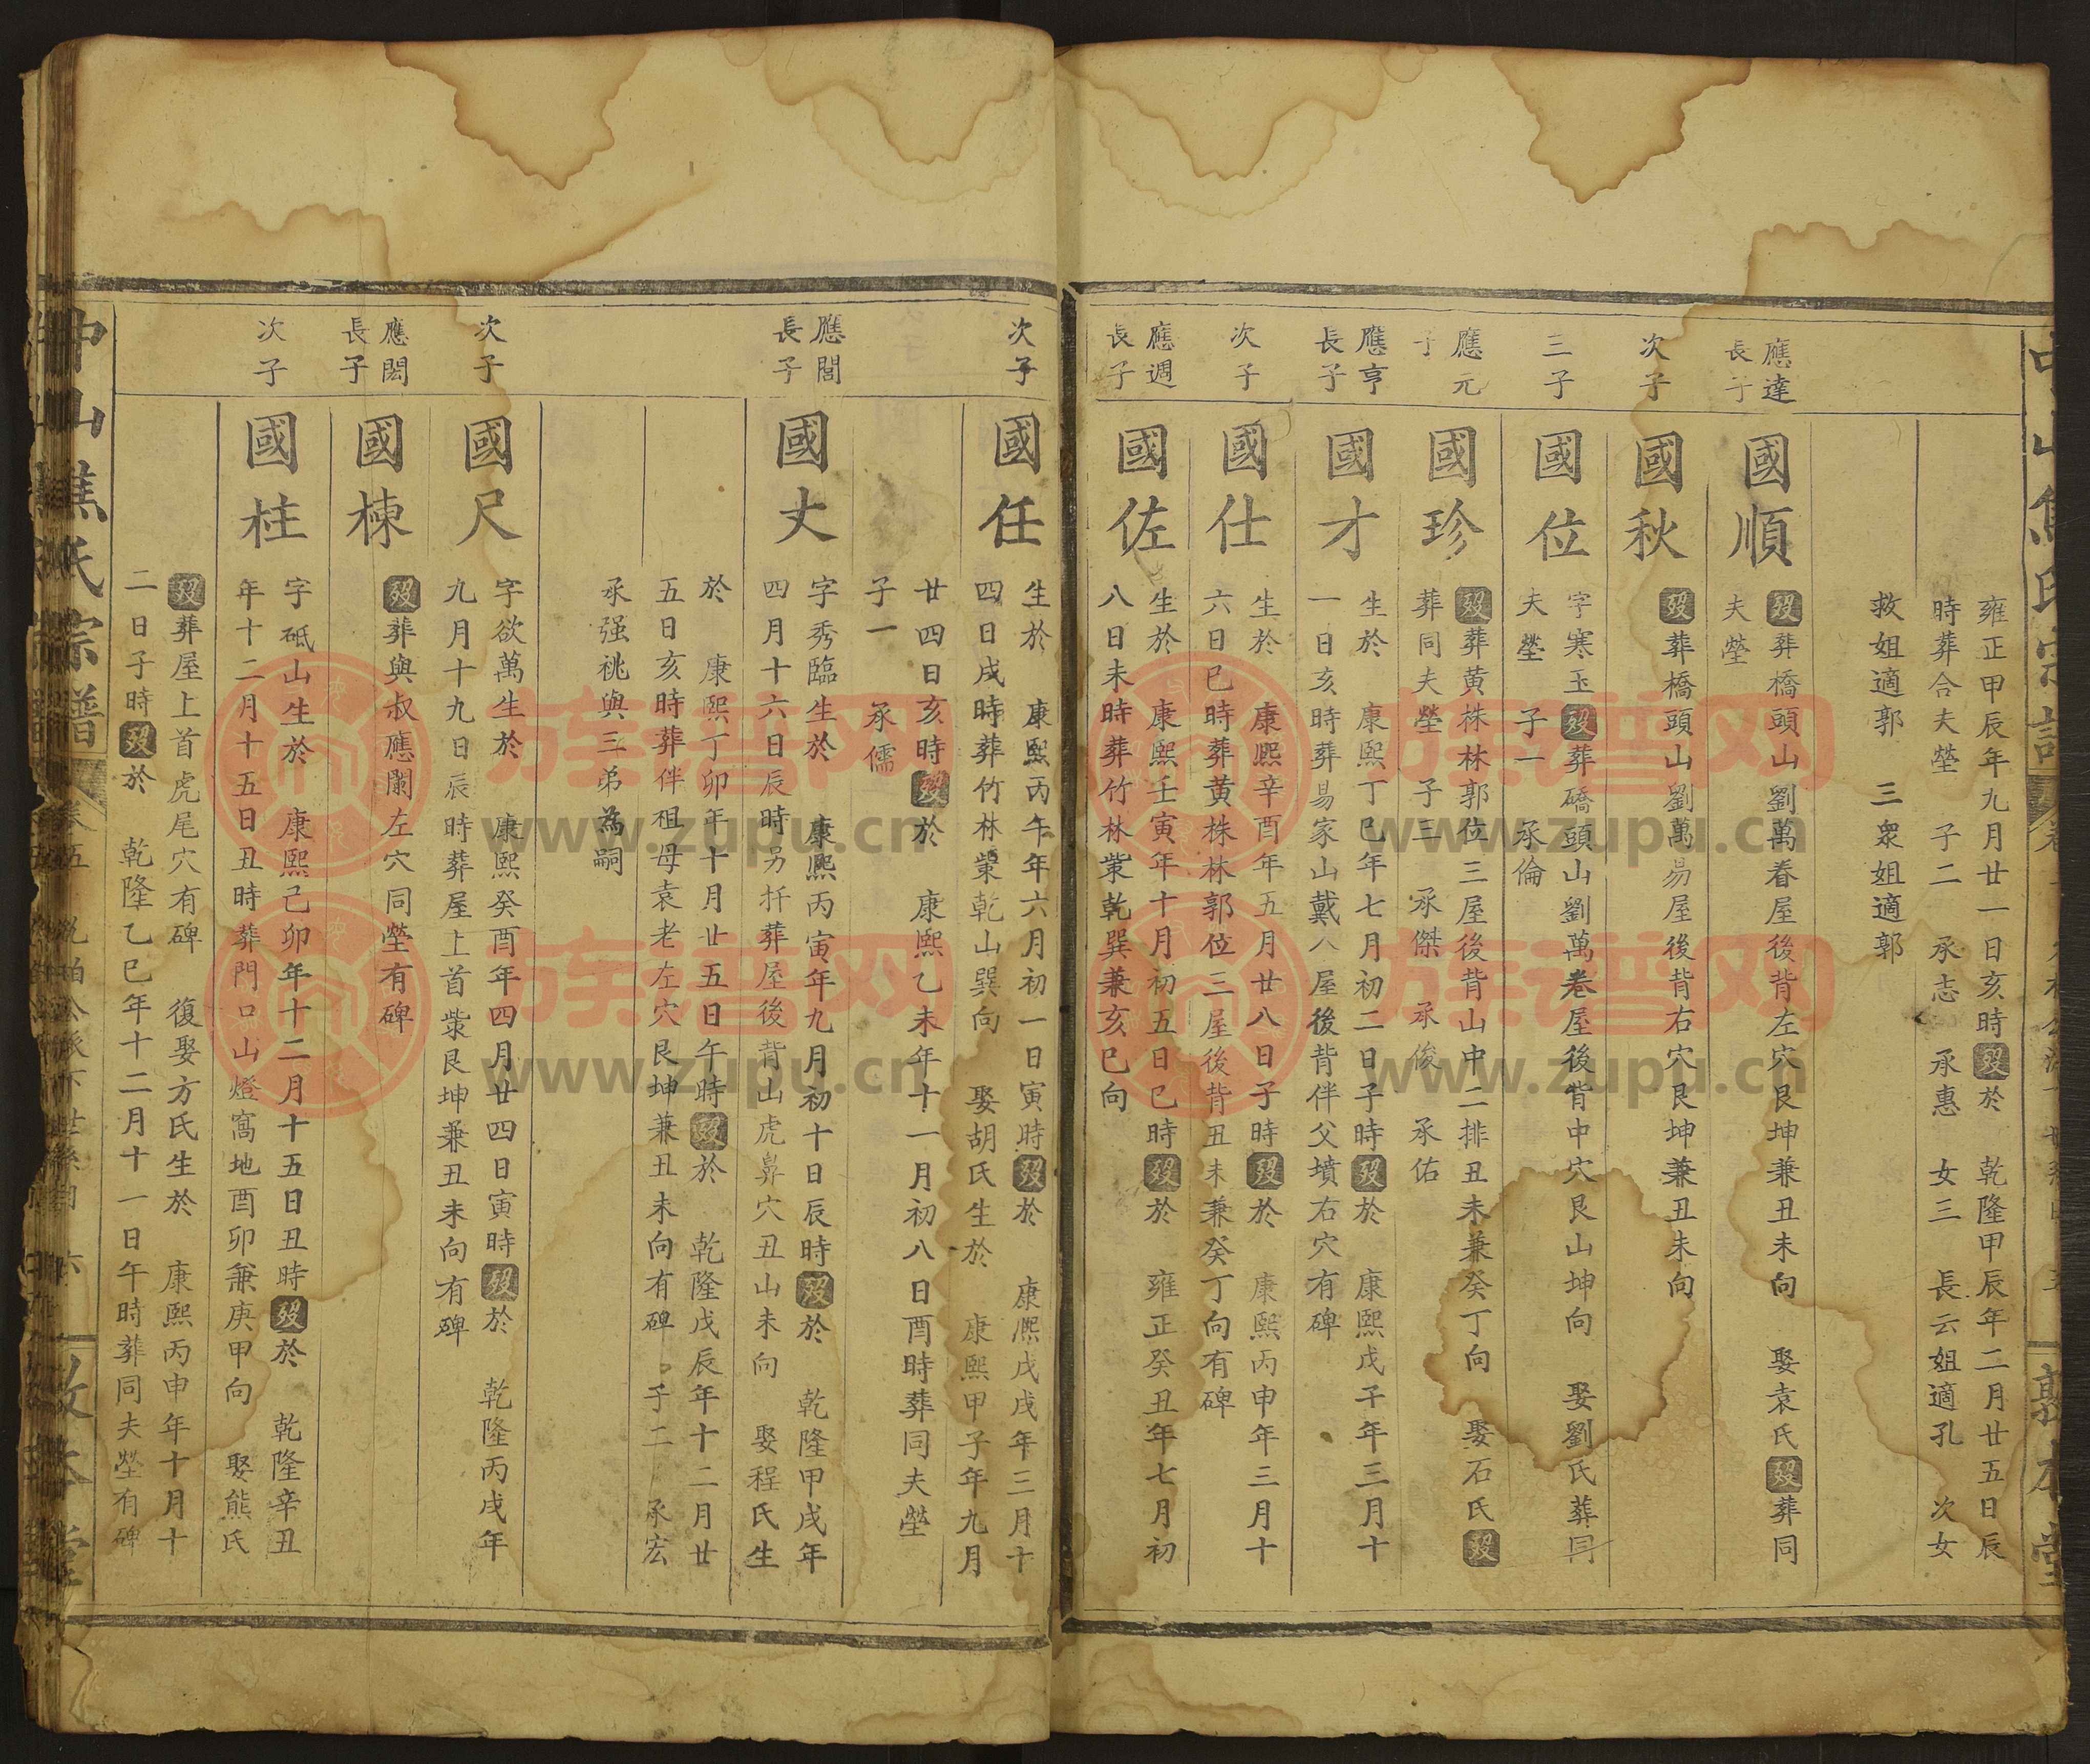 雍正甲辰年九月廿一日亥時歿於 乾隆甲辰年二月廿五日辰
時葬合夫塋 子二 承志 承惠 女三 長云姐適孔 次女
救姐適郭 三衆姐適郭
應達
長子
國順
歿葬橋頭山劉萬眷屋後背左穴艮坤兼丑未向 娶袁氏歿葬同
夫塋
次子
國秋
歿葬橋頭山劉萬易屋後背右穴艮坤兼丑未向
三子
國位
字寒玉歿葬礄頭山劉萬卷屋後背中穴艮山坤向 娶劉氏葬同
夫塋 子一 承倫
應元
子
國珍
歿葬黄株林郭位三屋後背山中二排丑未兼癸丁向 娶石氏歿
葬同夫塋 子三 承傑 承俊 承佑
應亨
長子
國才
生於 康熙丁巳年七月初二日子時歿於 康熙戊子年三月十
一日亥時葬易家山戴八屋後背伴父墳右穴有碑
次子
國仕
生於 康熙辛酉年五月廿八日子時歿於 康熙丙申年三月十
六日巳時葬黄株林郭位三屋後背丑未兼癸丁向有碑
應週
長子
國佐
生於 康熙壬寅年十月初五日巳時歿於 雍正癸丑年七月初
八日未時葬竹林㟅乾巽兼亥巳向
次子
國任
生於 康熙丙午年六月初一日寅時歿於 康熙戊戌年三月十
四日戌時葬竹林㟅乾山巽向 娶胡氏生於 康熙甲子年九月
廿四日亥時歿於 康熙乙未年十一月初八日酉時葬同夫塋
子一 承儒
應閭
長子
國丈
字秀臨生於 康熙丙寅年九月初十日辰時歿於 乾隆甲戌年
四月十六日辰時另扦葬屋後背山虎鼻穴丑山未向 娶程氏生
於 康熙丁卯年十月廿五日午時歿於 乾隆戊辰年十二月廿
五日亥時葬伴祖母袁老左穴艮坤兼丑未向有碑 子二 承宏
承强祧與三弟為嗣
次子
國尺
字欲萬生於 康熙癸酉年四月廿四日寅時歿於 乾隆丙戌年
九月十九日辰時葬屋上首㟅艮坤兼丑未向有碑
應閎
長子
國棟
歿葬與叔應闌左穴同塋有碑
次子
國柱
字砥山生於 康熙己卯年十二月十五日丑時歿於 乾隆辛丑
年十二月十五日丑時葬門口山燈窩地酉卯兼庚甲向 娶熊氏
歿葬屋上首虎尾穴有碑 復娶方氏生於 康熙丙申年十月十
二日子時歿於 乾隆乙巳年十二月十一日午時葬同夫塋有碑
中山焦氏宗譜 卷五 六 敦本堂
族谱网
www.zupu.cn
族谱网
www.zupu.cn
族谱网
www.zupu.cn
族谱网
www.zupu.cn